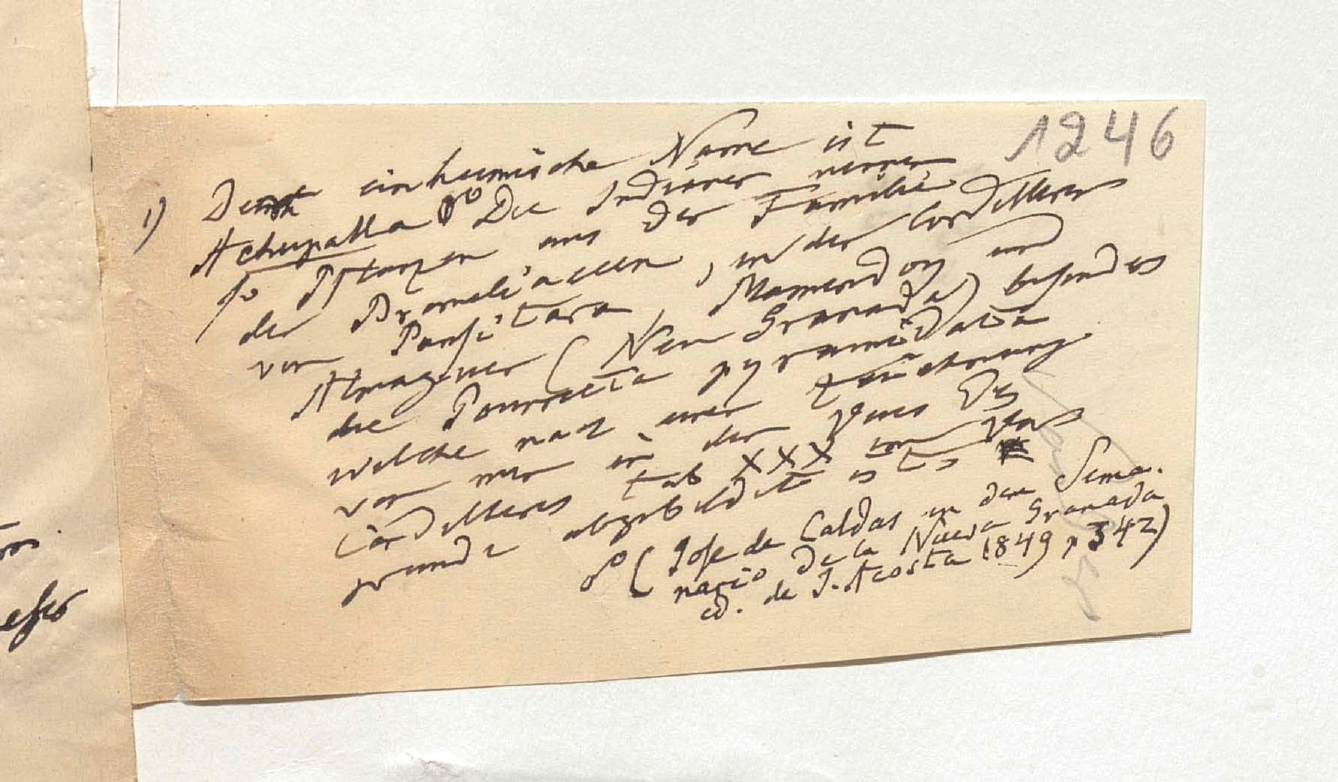 1246
1) Der einheimische Name ist
Achupalla φ Die Indianer nennen
so Pflanzen aus der Familie
der Bromeliaceen, in der Cordilleren
von Pansitara, Mamendoy und
Almaguer (Neu Granada) befindet es
die Pourretia pyramidata
welche nach einer Zeichnung
von mir in der Vues des
Cordilleres tab XXX im
grunde abgebildet ist es
φ (Jose de Caldas in dem Sema-
nario de la Nueva Granada
ed. de J. Acosta 1849 p 342)